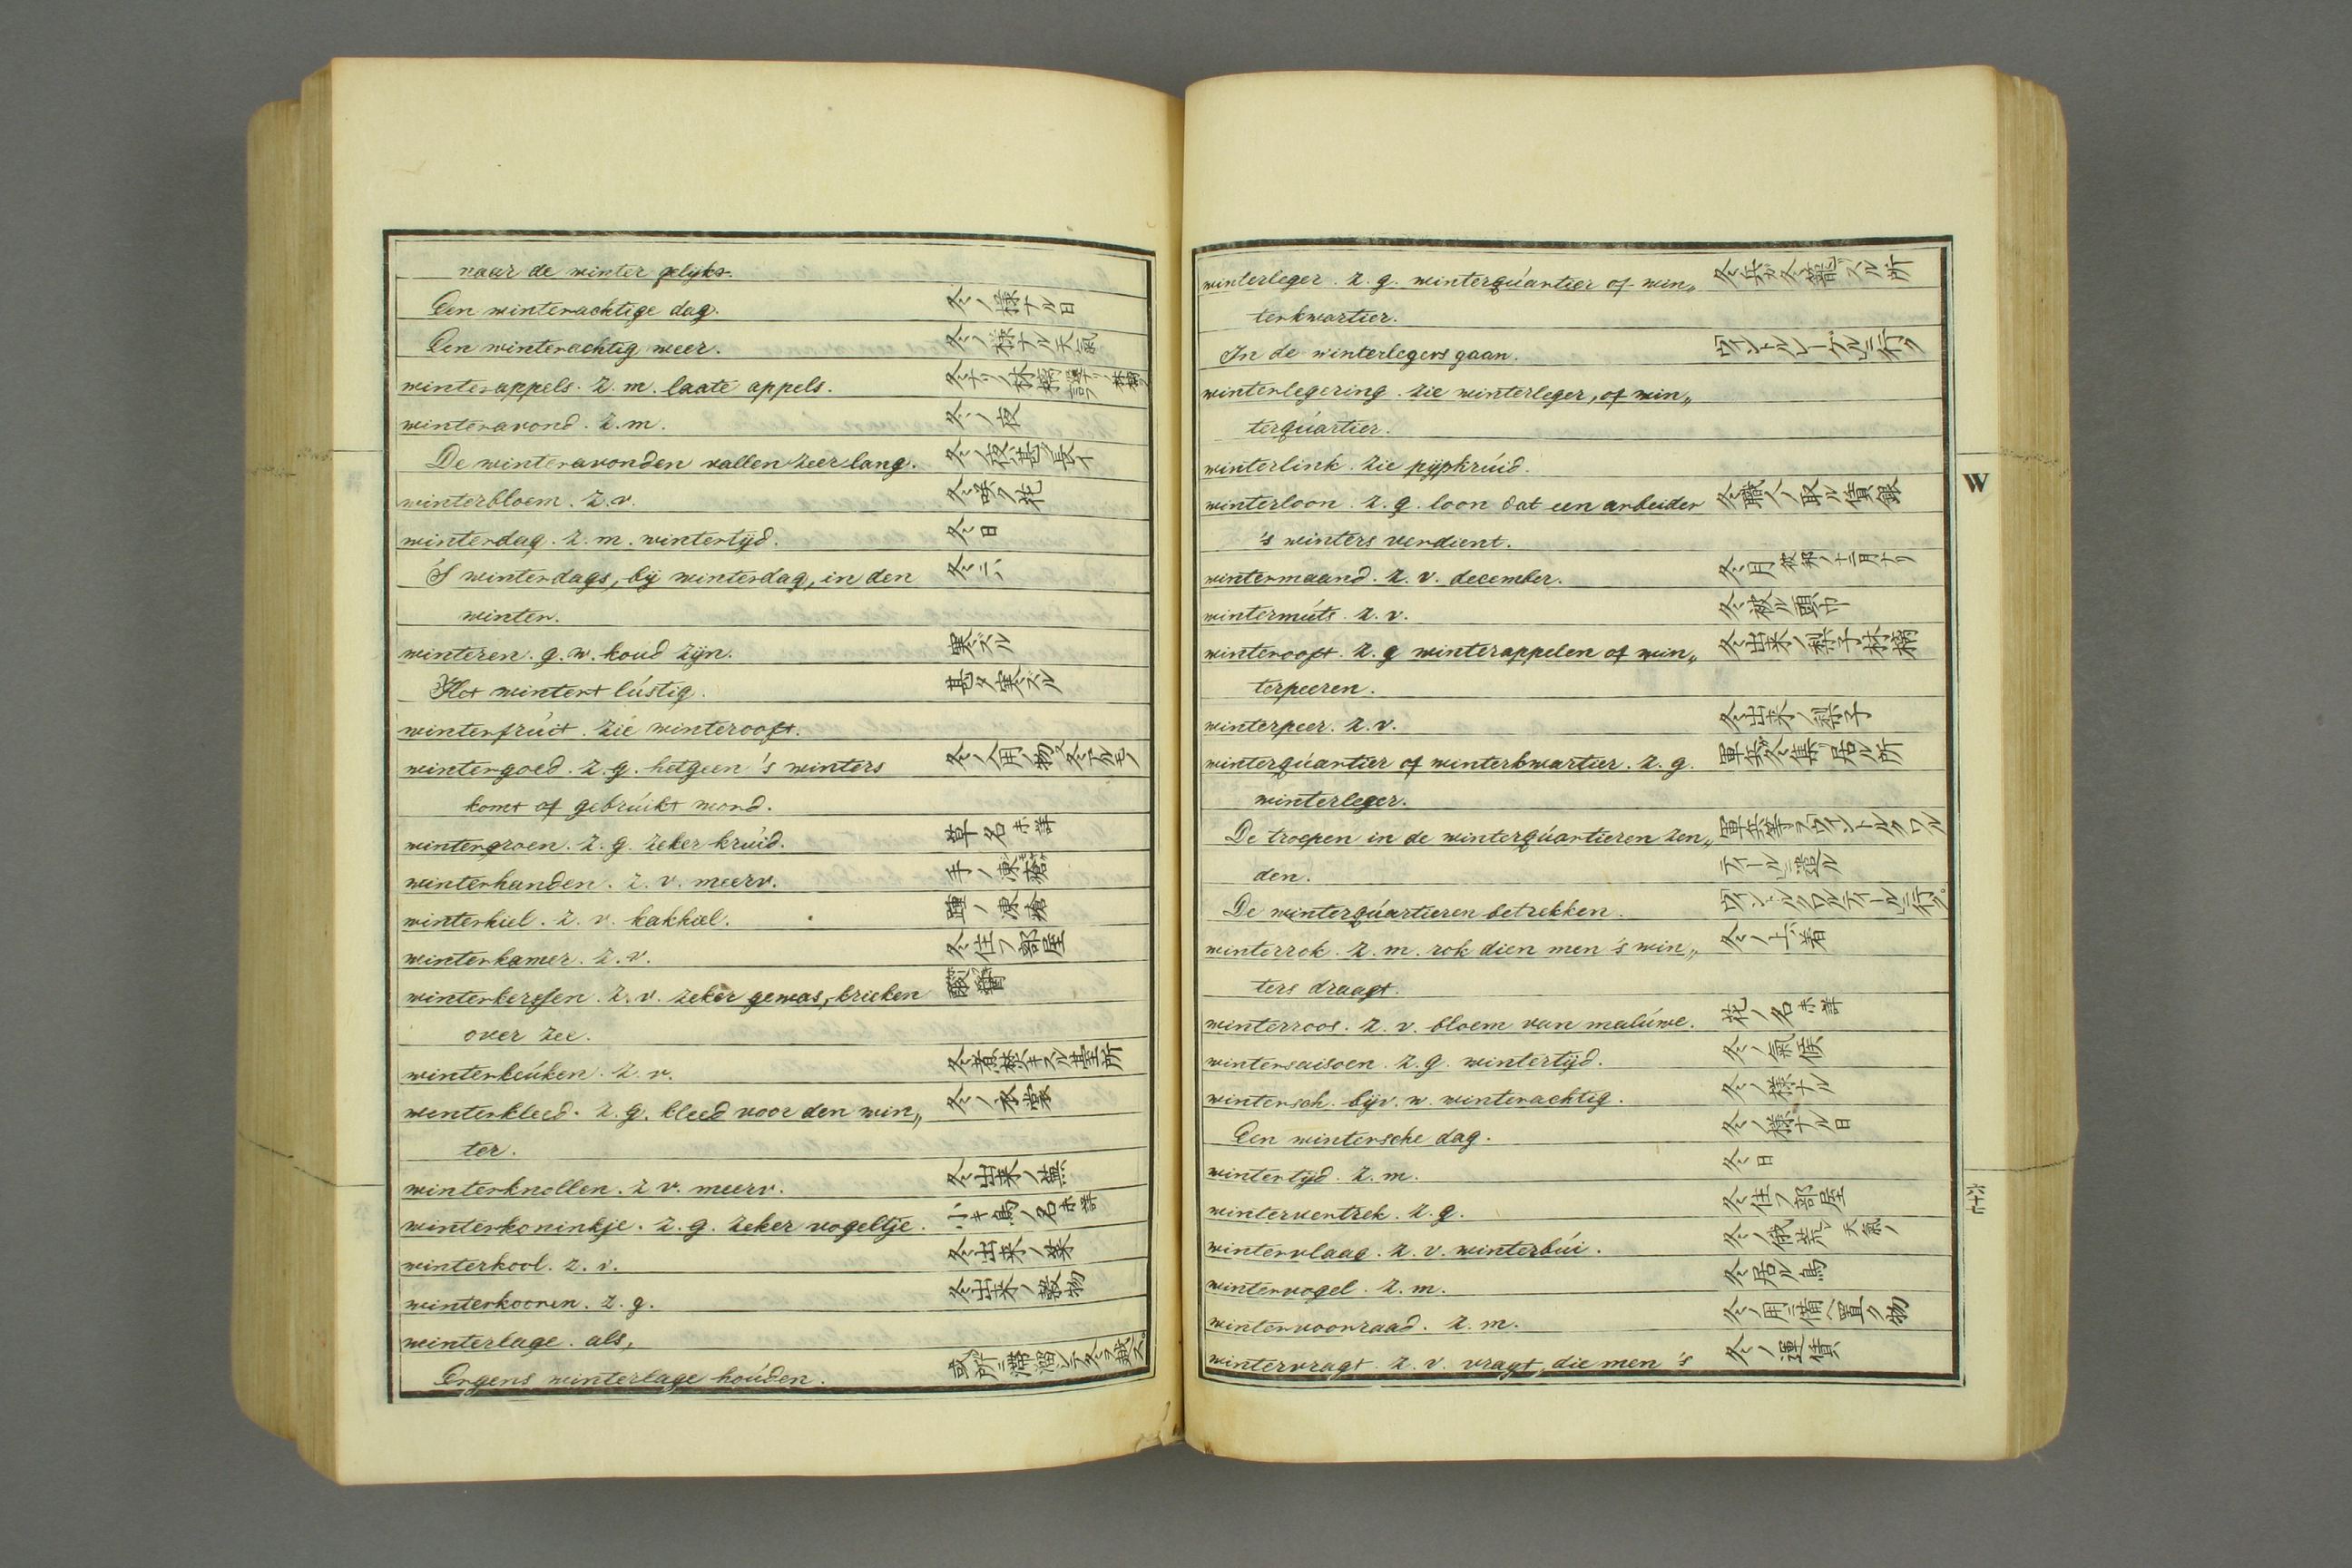 naar de winter gelijkt.
Een winterachtige dag. 冬ノ様ナル日
Een winterachtig weer. 冬ノ様ナル天氣
winterappels. z. m. laate appels.
winteravond. z. m. 冬ノ夜
De winteravonden vallen zeer lang. 冬ノ夜甚タ長イ
winterbloem. z. v. 冬咲ク花
winterdag. z. m. wintertijd. 冬日
'S winterdags, bij winterdag, in den
winter.
winteren. g. w. koud zijn. 寒ズル
Het wintert lústig. 甚タ寒ズル
winterfrúit. zie winterooft.
wintergoed. z. g. hetgeen 's winters
komt of gebrúikt word.
wintergroen. z. g. zeker krúid. 草名未詳
winterhanden. z. v. meerv. 手ノ凍瘡
winterhiel. z. v. kakhiel. 踵ノ凍瘡
winterkamer. z. v. 冬住フ部屋
winterkerssen. z. v. zeker gewas, krieken 酸醤
over zee.
winterkeúken. z. v.
winterkleed. z. g. kleed voor den win„ 冬ノ衣裳
ter.
winterknollen. z v. meerv.
winterkoninkje. z. g. zeker vogeltje. 小キ鳥ノ名未詳
winterkool. z. v. 冬出来ノ菜
winterkooren. z. g. 冬出来ノ穀物
winterlage. als,
Ergens winterlage hoúden. 或所ニ滞溜シテ冬ヲ越ス
winterleger. z. g. winterqúartier of win„ 冬兵ガ冬籠スル所
terkwartier.
In de winterlegers gaan. ウィントルレーゲルニ行ク
winterlegering. zie winterleger, of win„
terqúartier.
winterlink. zie pijpkrúid.
winterloon. z. g. loon dat een arbeider 冬職人ノ取ル賃銀
's winters verdient.
wintermaand. z. v. december. 冬月 彼邦ノ十二月ナリ
wintermúts. z. v. 冬被ル頭巾
winterooft. z. g winterappelen of win„ 冬出来ノ梨子林檎
terpeeren.
winterpeer. z. v. 冬出来ノ梨子
winterqúartier of winterkwartier. z. g. 軍兵冬集リ居ル所
winterleger.
De troepen in de winterqúartieren zen„ 軍兵等ヲウィントルクワル
den. ティールニ遣ル
De winterqúartieren betrekken. ウィントルクワルティールニ行ク。
winterrok. z. m. rok dien men 's win„ 冬ノ上着
ters draagt.
winterroos. z. v. bloem van malúwe. 花ノ名未詳
wintersaisoen. z. g. wintertijd. 冬ノ氣候
wintersch. bijv. w. winterachtig. 冬ノ様ナル
Een wintersche dag. 冬ノ様ナル日
wintertijd. z. m. 冬日
wintervertrek. z. g. 冬住フ部屋
wintervlaag. z. v. winterbúi. 冬ノ俄荒 天氣ノ
wintervogel. z. m. 冬居ル鳥
wintervoorraad. z. m. 冬ノ用ニ備ヘ置ク物
wintervragt. z. v. vragt, die men 's 冬ノ運賃
W